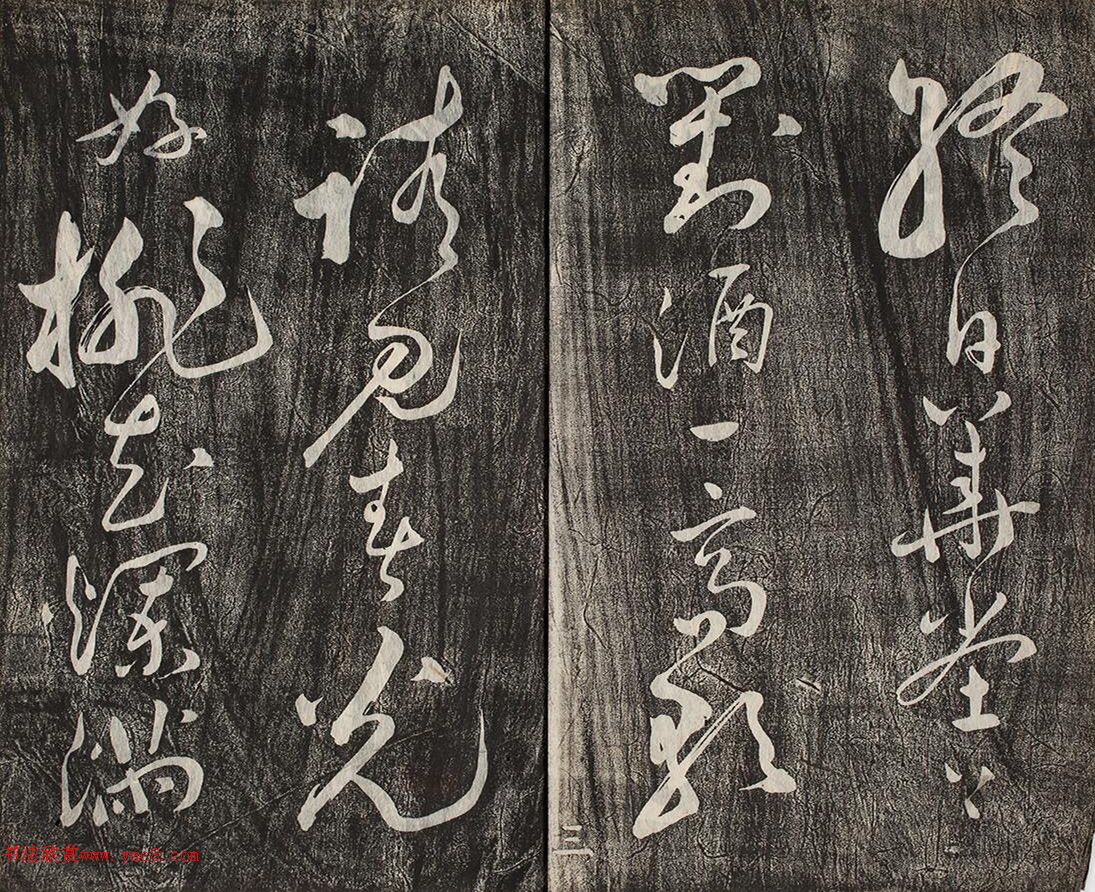 終日草堂上
對酒一高歌
見春光
好桃花深滿
三
书法欣赏www.yac8.com